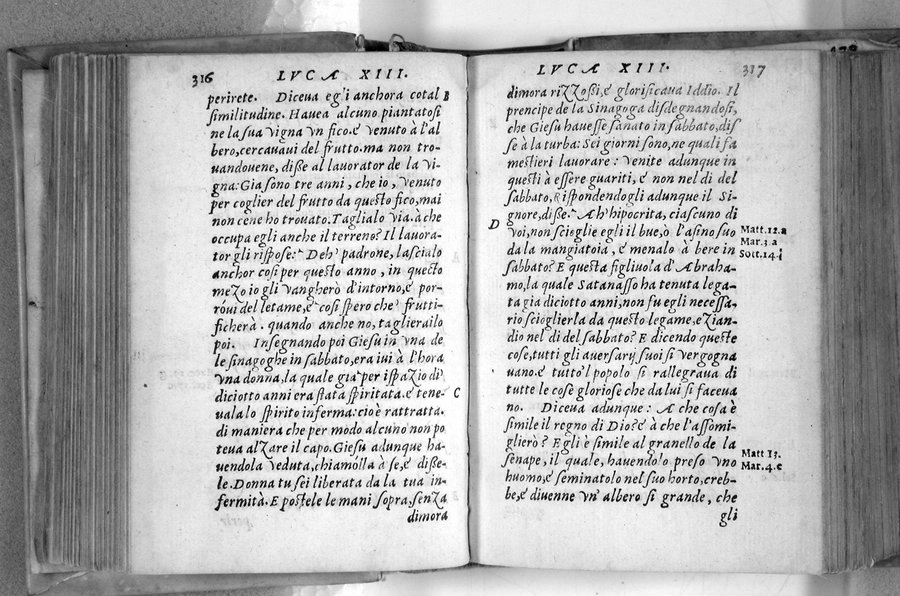 316 LVCA XIII.
perirete. Diceua egli anchora cotal B
similitudine. Hauea alcuno piantatosi
ne la sua vigna vn fico.è venuto à l'al
bero,cercauaui del frutto.ma non tro-
uandouene, disse al lauorator de la vi-
gna: Gia sono tre anni, che io, venuto
per coglier del frutto da questo fico,mai
non cene ho trouato. Taglialo via. à che
occupa egli anche il terreno? Il lauora-
tor gli rispose: Deh' padrone, lascialo
anchor cosi per questo anno, in questo
mezo io gli vangherò d'intorno,è por-
roui del letame,è cosi spero che' frutti-
ficherà. quando anche no, taglierailo
poi. Insegnando poi Giesu in vna de
le sinagoghe in sabbato,era iui à l'hora
vna donna,la quale gia per ispazio di
diciotto anni era stata spiritata.è tene- C
uala lo spirito inferma: cioè rattratta.
di maniera che per modo alcuno non po
teua alzare il capo. Giesu adunque ha-
uendola veduta,chiamolla à se,è disse-
le. Donna tu sei liberata da la tua in-
fermità. E postele le mani sopra,senza
dimora
LVCA XIII. 317
dimora rizzossi,è glorificaua Iddio. Il
prencipe de la Sinagoga disdegnandosi,
che Giesu hauesse sanato in sabbato,dis
se à la turba: Sei giorni sono,ne quali fa
mestieri lauorare: venite adunque in
questi à essere guariti, è non nel di del
sabbato, Rispondendogli adunque il Si-
gnore,disse. Ah' hipocrita, ciascuno di
D voi,non scioglie egli il bue,ò l'asino suo Matt.12.a
da la mangiatoia, è menalo à bere in Mar.3.a
sabbato? E questa figliuola d'Abraha- Sott.14.
mo,la quale Satanasso ha tenuta lega-
ta gia diciotto anni,non fu egli necessa-
rio scioglierla da questo legame,ezian-
dio nel di del sabbato? E dicendo queste
cose,tutti gli auersarij suoi si vergogna
uano.è tutto'l popolo si rallegraua di
tutte le cose gloriose che da lui si faceua
no. Diceua adunque: A che cosa è
simile il regno di Dio? è à che l'assomi-
glierò? Egli è simile al granello de la
senape, il quale, hauendo'o preso vno Matt 13.
huomo,è seminatolo nel suo horto,creb- Mar.4.c
be,è diuenne vn' albero si grande, che
gli